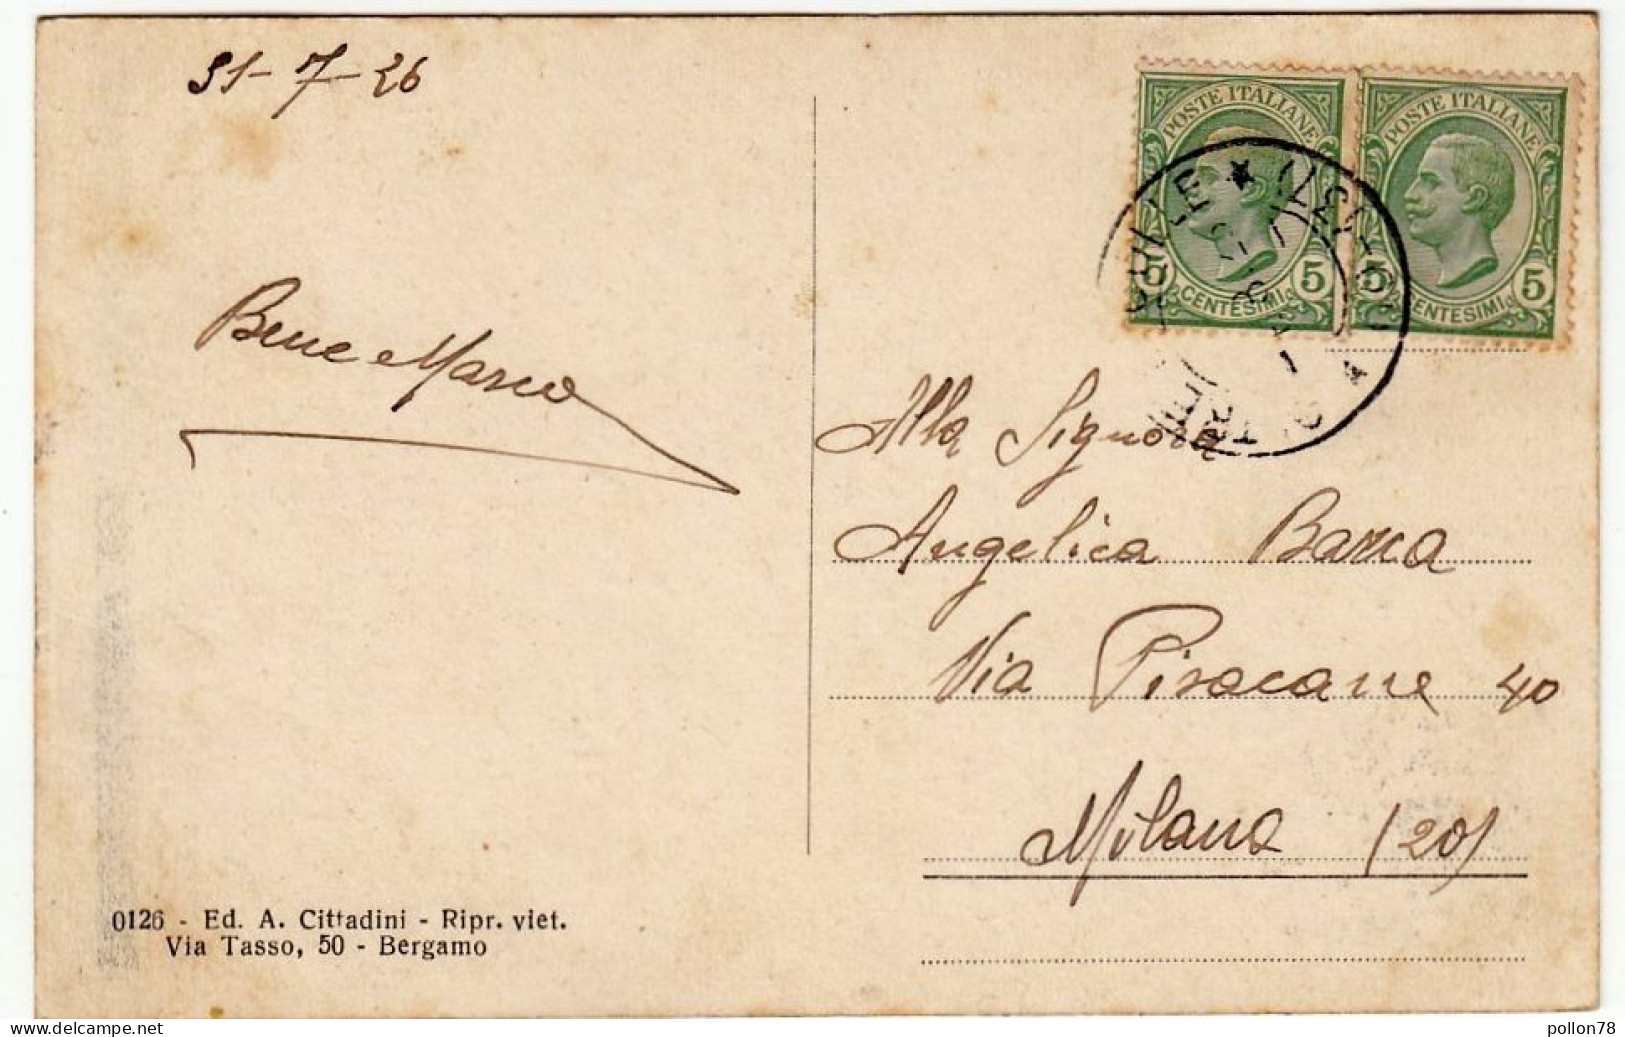 31-7-26
POSTE ITALIANE
5 5
CENTESIMI
POSTE ITALIANE
5 5
CENTESIMI
Bene Marco
Alla Signora
Angelica Barca
Via Pisacane 40
Milano (20)
0126 - Ed. A. Cittadini - Ripr. viet.
Via Tasso, 50 - Bergamo
www.delcampe.net
pollon78